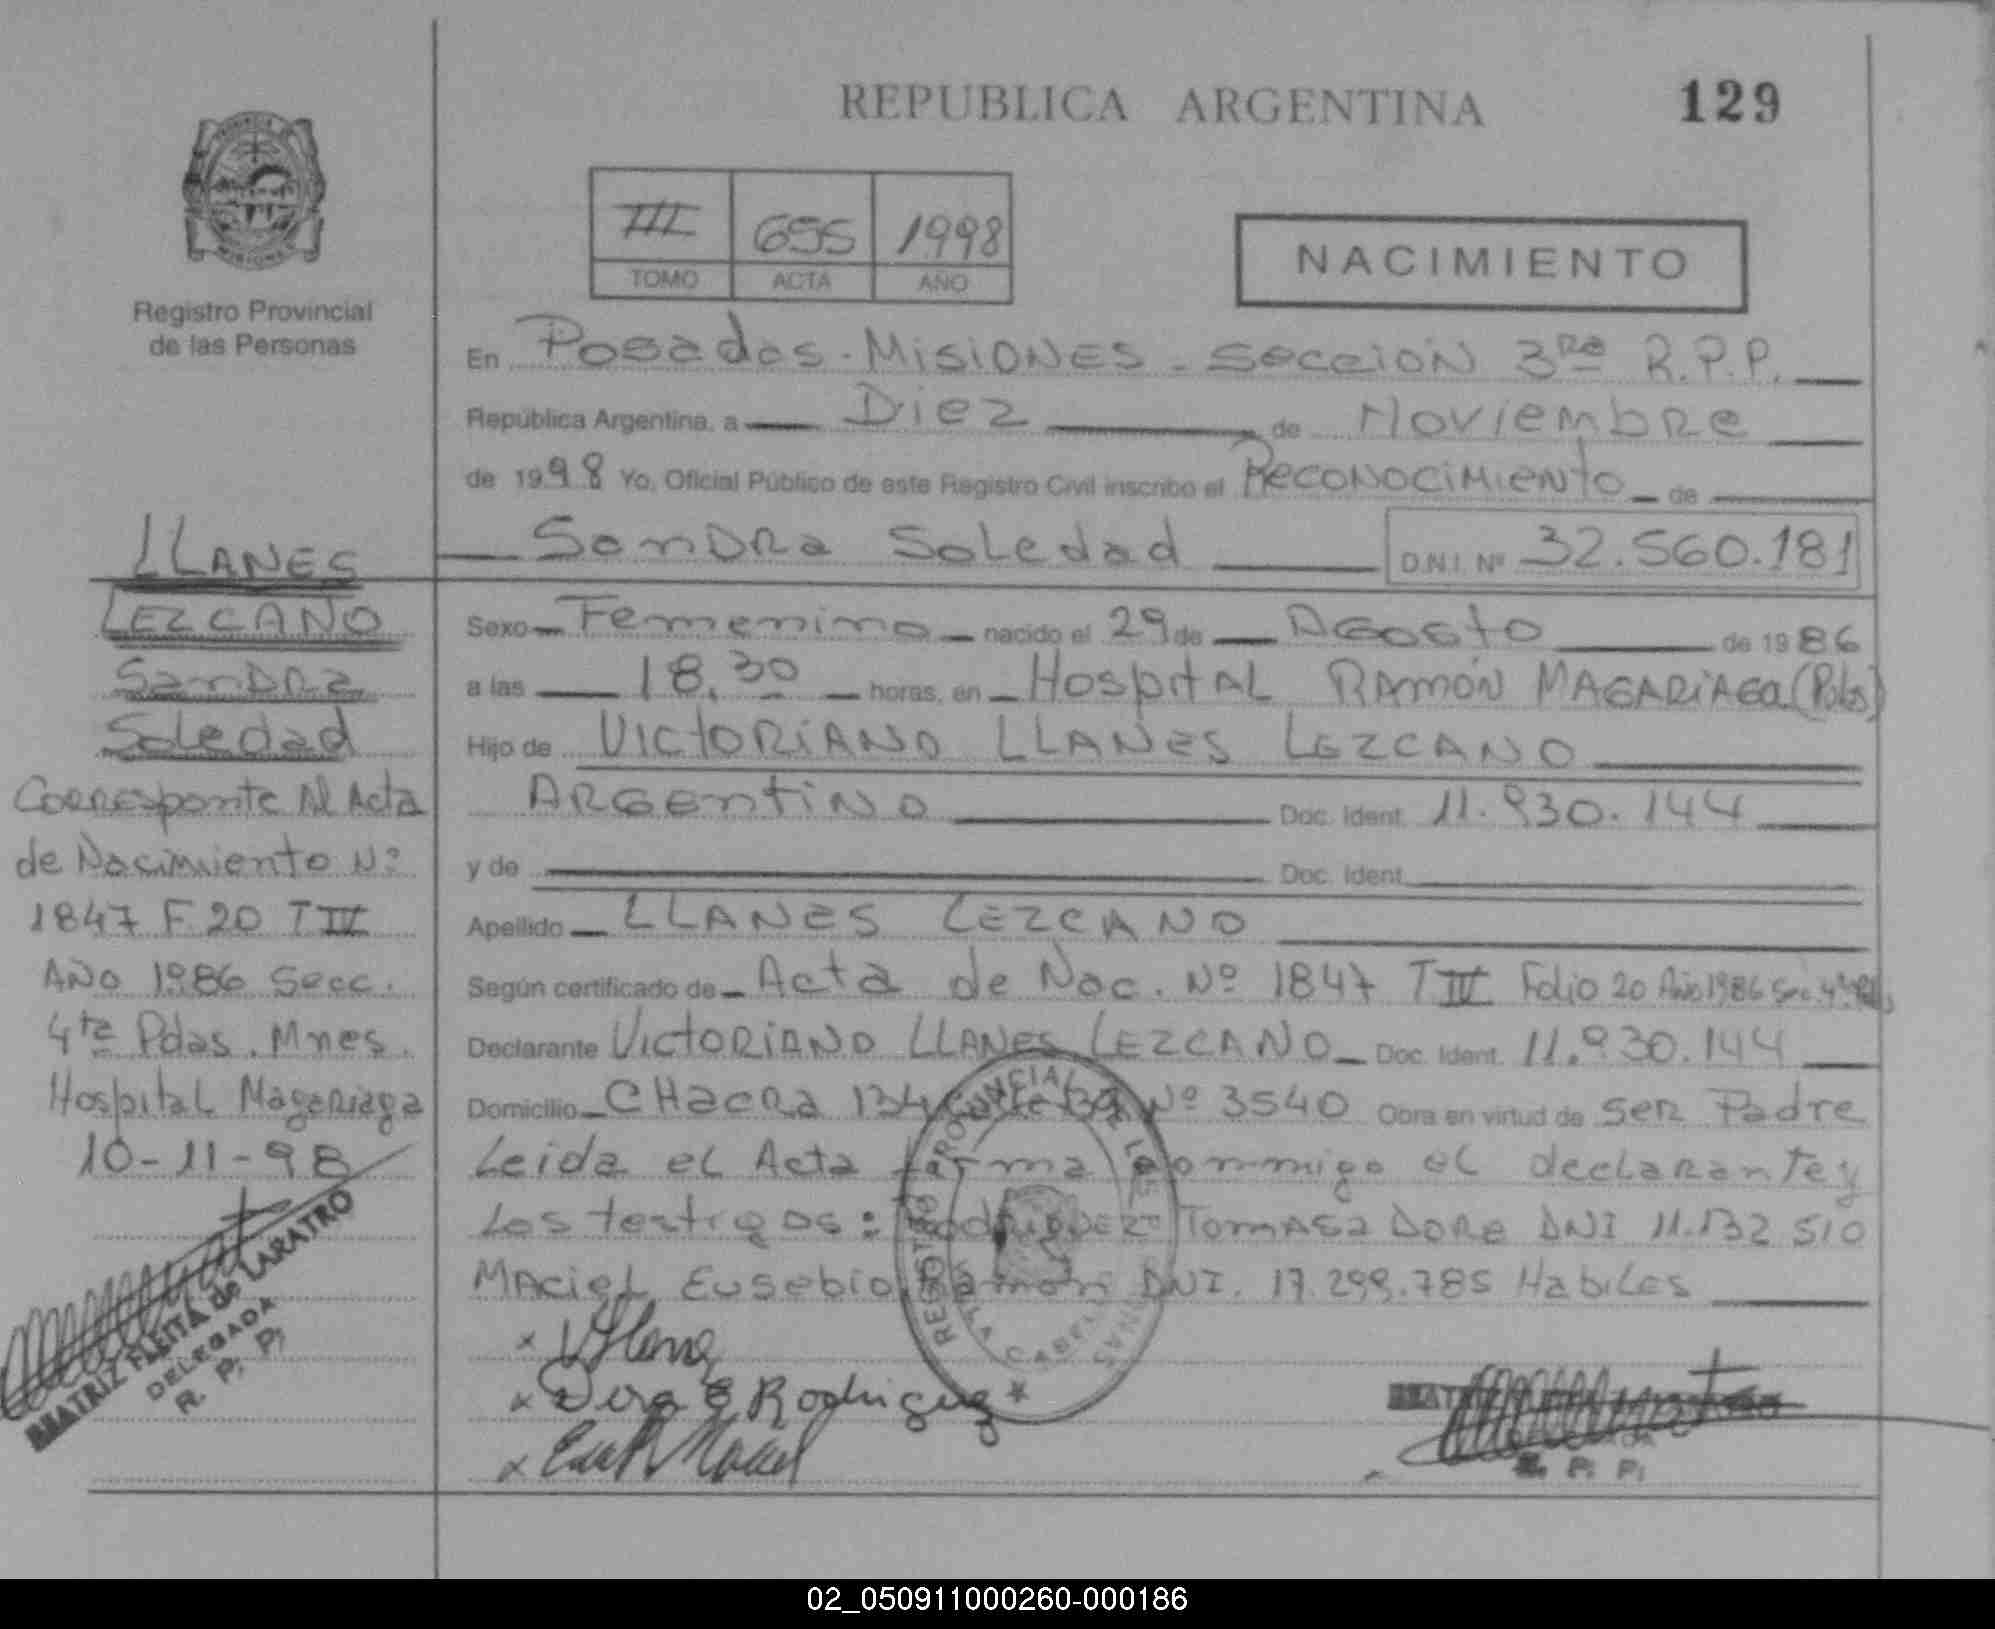 REPUBLICA ARGENTINA
129
Registro Provincial
de las Personas
III 655 1998
TOMO ACTA AÑO
NACIMIENTO
En Posadas - Misiones - Seccion 3ra R.P.P.
República Argentina, a Diez de Noviembre
de 1998 Yo, Oficial Público de este Registro Civil inscribo el Reconocimiento de
Sandra Soledad D.N.I. Nº 32.560.181
Sexo Femenino nacido el 29 de Agosto de 1986
a las 18.30 horas, en Hospital Ramón Magariaga (Pdas)
Hijo de Victoriano Llanes Lezcano
Argentino Doc. Ident. 11.930.144
y de Doc. Ident.
Apellido Llanes Lezcano
Según certificado de Acta de Nac. Nº 1847 T IV Folio 20 Año 1986 Sec. 4ta
Declarante Victoriano Llanes Lezcano Doc. Ident. 11.930.144
Domicilio Chacra 134 Nº 3540 Obra en virtud de ser Padre
Leida el Acta firma conmigo el declarante y
Los testigos: Rodriguez Tomasa Dora DNI 11.132 510
Maciel Eusebio Ramon DNI. 17.299.785 Habiles
LLANES
LEZCANO
Sandra
Soledad
Corresponte Al Acta
de Nacimiento Nº
1847 F. 20 T IV
Año 1986 Secc.
4ta Pdas. Mnes.
Hospital Magariaga
10-11-98
BEATRIZ FLEITA de LARATRO
DELEGADA
R. P. P.
REGISTRO PROVINCIAL DE LAS
x
x Dora E Rodriguez
x
R. P. P.
02_050911000260-000186